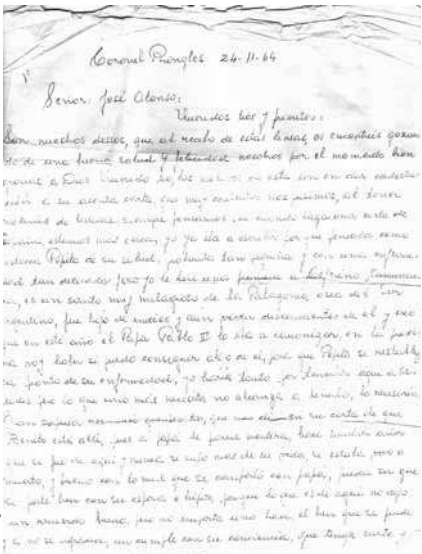 Coronel Pringles 24-11-64
Señor: José Alonso:
Queridos tios y primitos:
Son nuestros deseos, que al recibo de estas lineas, os encontreis gozan
do de una buena salud y felicidad nosotros por el momento bien
gracias a Dios Querido tio, los dos en esta son en dar contesta
ción a su atenta carta, que muy contentos nos pusimos, al tener
noticias de Ustedes siempre pensamos, que cuando llega una carta de
estamos mas cerca, yo ya iba a escribir por que pensaba como
estaria Pepita de su salud, pobrecita tan jovencita y con una enferme
dad tan pero yo le hare unas a Ceferino Namuncura
es un santo muy milagroso de la Patagonia, osea es bien
argentino, fue hijo de indios y aun viven descendientes de el y creo
que en este año el Papa Pablo VI lo iba a canonizar, en la
voy haber si puedo conseguir algo de el, para que Pepita se restablez
ca pronto de su enfermedad, yo haria tanto por tenerlos aqui a Us
tedes pero lo que uno mas necesita no alcanza a tenerlo,
queridos tios, que nos en su carta de que
Benito está allí, pues a papá le parece mentira, hace muchos años
que se fue de aqui y nunca se supo mas de su vida, si estaba vivo o
muerto, y bueno con lo mal que se comportó con papá, puede ser que
se porte bien con su esposa e hijos, porque lo que es de aqui no dejo
un recuerdo bueno, pero no importa uno hace, el bien que se puede
y si no se agradece, uno cumple con su conciencia, que tenga suerte y